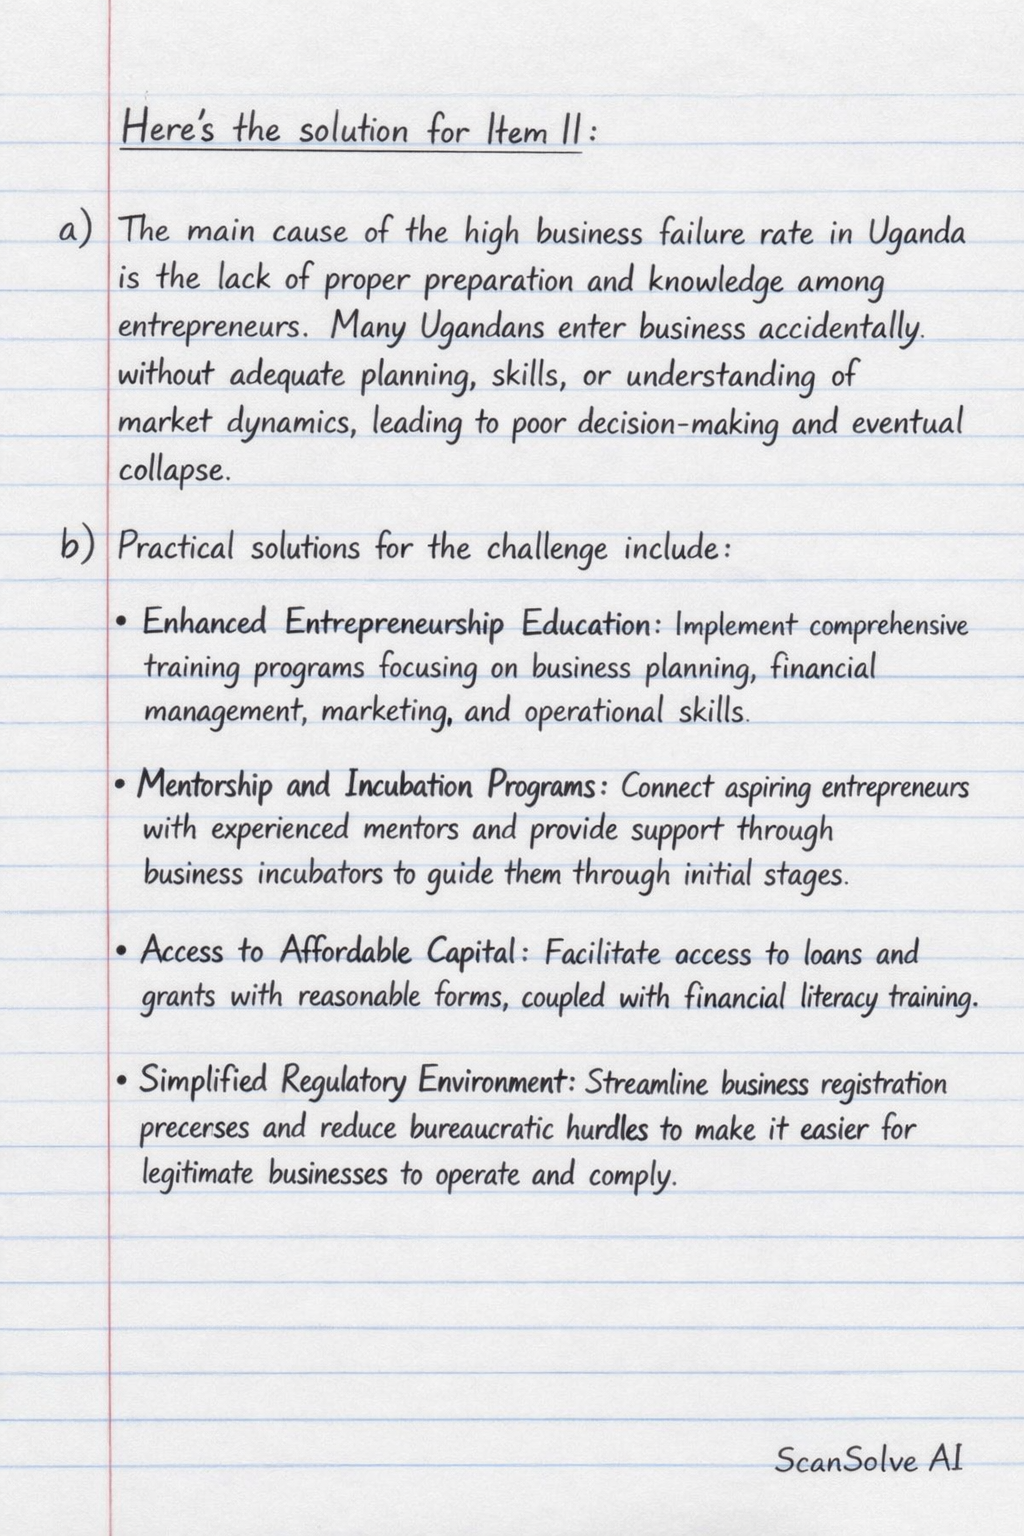 Here's the solution for Item II:
a) The main cause of the high business failure rate in Uganda
is the lack of proper preparation and knowledge among
entrepreneurs. Many Ugandans enter business accidentally.
without adequate planning, skills, or understanding of
market dynamics, leading to poor decision-making and eventual
collapse.
b) Practical solutions for the challenge include:
• Enhanced Entrepreneurship Education: Implement comprehensive
training programs focusing on business planning, financial
management, marketing, and operational skills.
• Mentorship and Incubation Programs: Connect aspiring entrepreneurs
with experienced mentors and provide support through
business incubators to guide them through initial stages.
• Access to Affordable Capital: Facilitate access to loans and
grants with reasonable forms, coupled with financial literacy training.
• Simplified Regulatory Environment: Streamline business registration
precerses and reduce bureaucratic hurdles to make it easier for
legitimate businesses to operate and comply.
ScanSolve AI